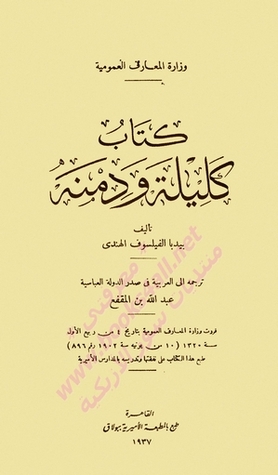 وزارة المعارف العمومية
كتاب
كليلة ودمنه
تأليف
بيدبا الفيلسوف الهندى
ترجمه الى العربية فى صدر الدولة العباسية
عبد الله بن المقفع
قررت وزارة المعارف العمومية بتاريخ ٤ من ربيع الأول
سنة ١٣٢٠ (١٠ من يونيه سنة ١٩٠٢ رقم ٨٩٦)
طبع هذا الكتاب على نفقتها وتدريسه بالمدارس الأميرية
القاهرة
طبع بالمطبعة الأميرية ببولاق
١٩٣٧